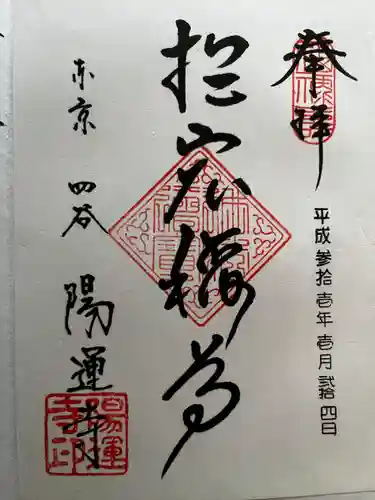 奉拝
平成参拾壱年壱月弐拾四日
於岩稲荷
東京 四谷 陽運寺
陽運寺印